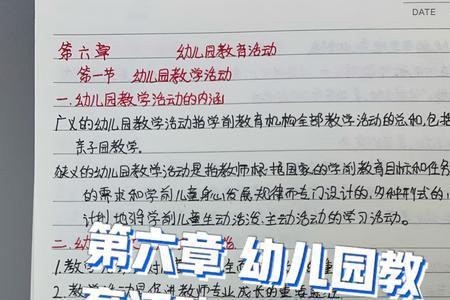 DATE
第六章 幼儿园教育活动
第一节 幼儿园教学活动
一.幼儿园教学活动的内涵
广义的幼儿园教学活动指学前教育机构全部教学活动的总和,包括
亲子园教学。
狭义的幼儿园教学活动是指教师根据国家的学前教育目标和任务
的需求和学前儿童身心发展规律而专门设计的,多种形式的,
计划地将学前儿童主动活泼、主动活动的学习活动。
二.幼
第六章 幼儿园教
1.教学
2.教学活动是促进教师专业成长的重要途径